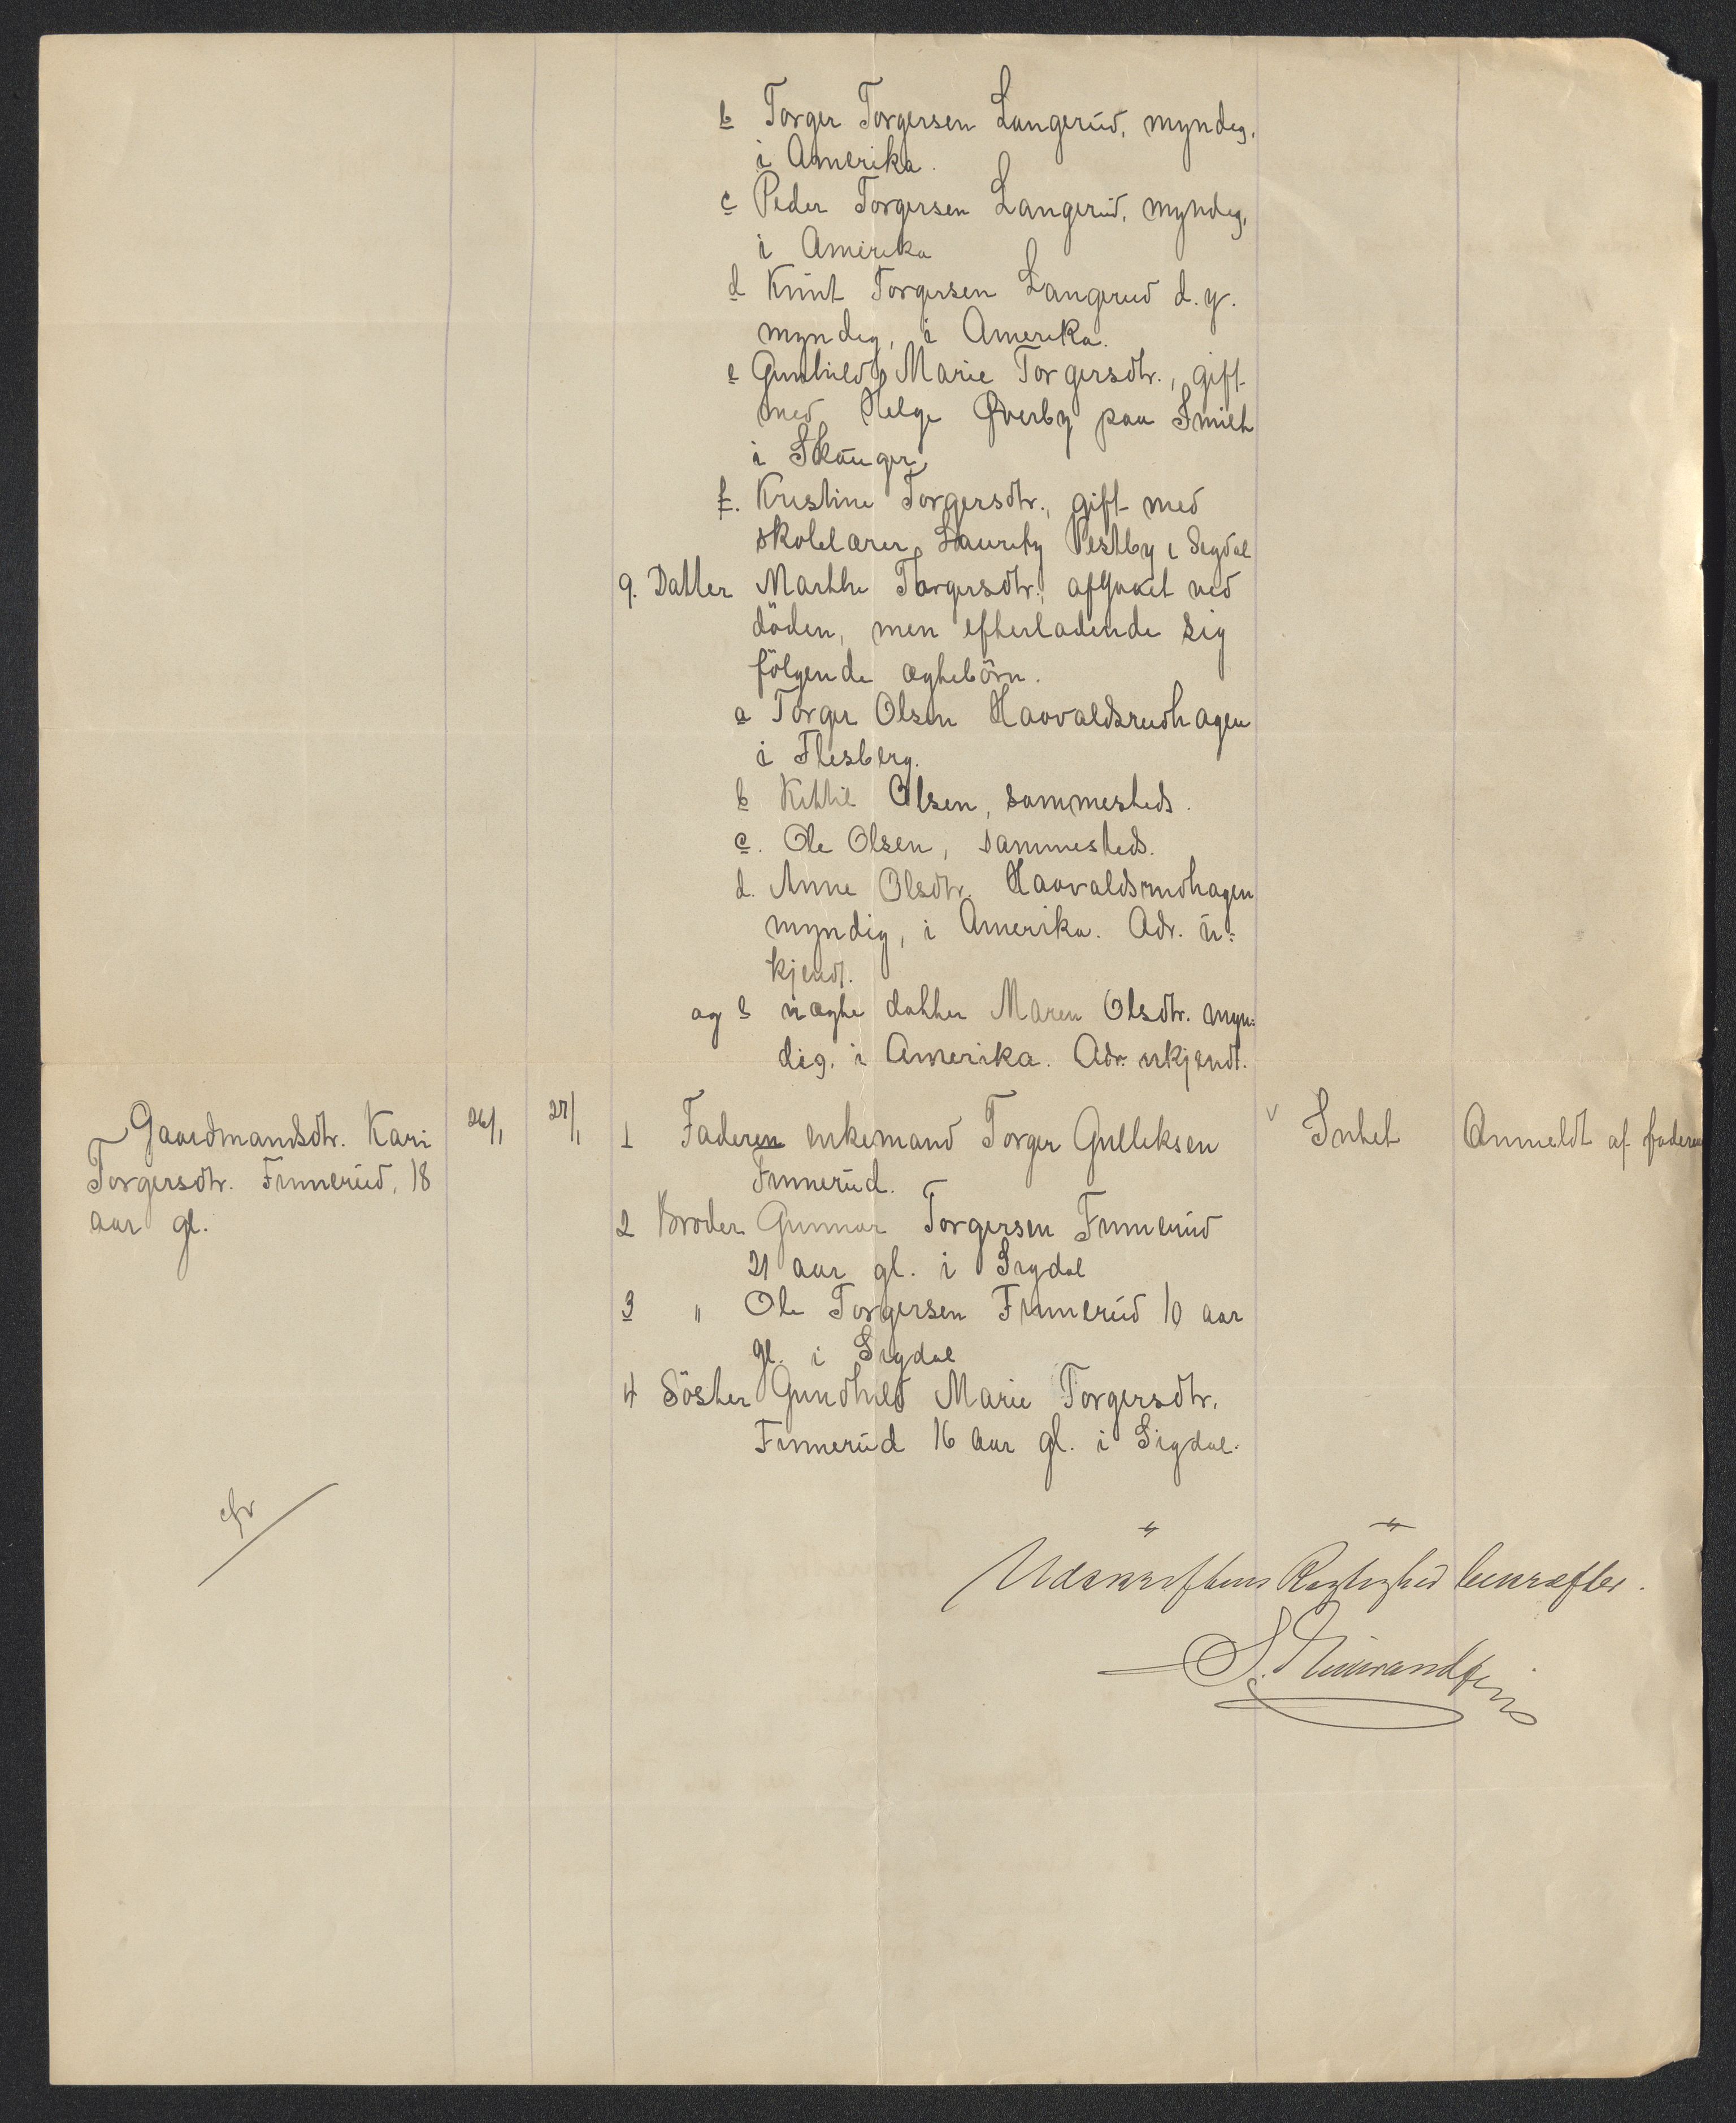 b Torger Torgersen Langerud, myndig,
i Amerika.
c Peder Torgersen Langerud, myndig,
i Amerika
d Knut Torgersen Langerud d. y.
myndig, i Amerika.
e Gunhild Marie Torgersdtr., gift
med Helge Øverby paa
i Skauger
f. Kristine Torgersdtr., gift med
skolelærer Lauritz Vestby i Sigdal
9. Datter Marthe Torgersdtr., afgaaet ved
döden, men efterladende sig
fölgende ægtebörn.
a Torger Olsen Haavaldsrudhagen
i Flesberg.
b Kittil Olsen, sammesteds.
c. Ole Olsen, sammesteds.
d. Anne Olsdtr. Haavaldsrudhagen
myndig, i Amerika. Adr. u=
kjendt.
og e uægte datter Maren Olsdtr. myn=
dig, i Amerika. Adr. ukjendt.
Gaardmandsdtr. Kari 26/1 27/1 1 Faderen enkemand Torger Gulleksen Intet Anmeldt af faderen
Torgersdtr. Finnerud, 18 Finnerud.
aar gl. 2 Broder Gunnar Torgersen Finnerud
21 aar gl. i Sigdal
3 " Ole Torgersen Finnerud 10 aar
gl. i Sigdal
4 Söster Gundhild Marie Torgersdtr.
Finnerud 16 aar gl. i Sigdal.
cfr
Udskriftens Rigtighed bekræftes.
S.